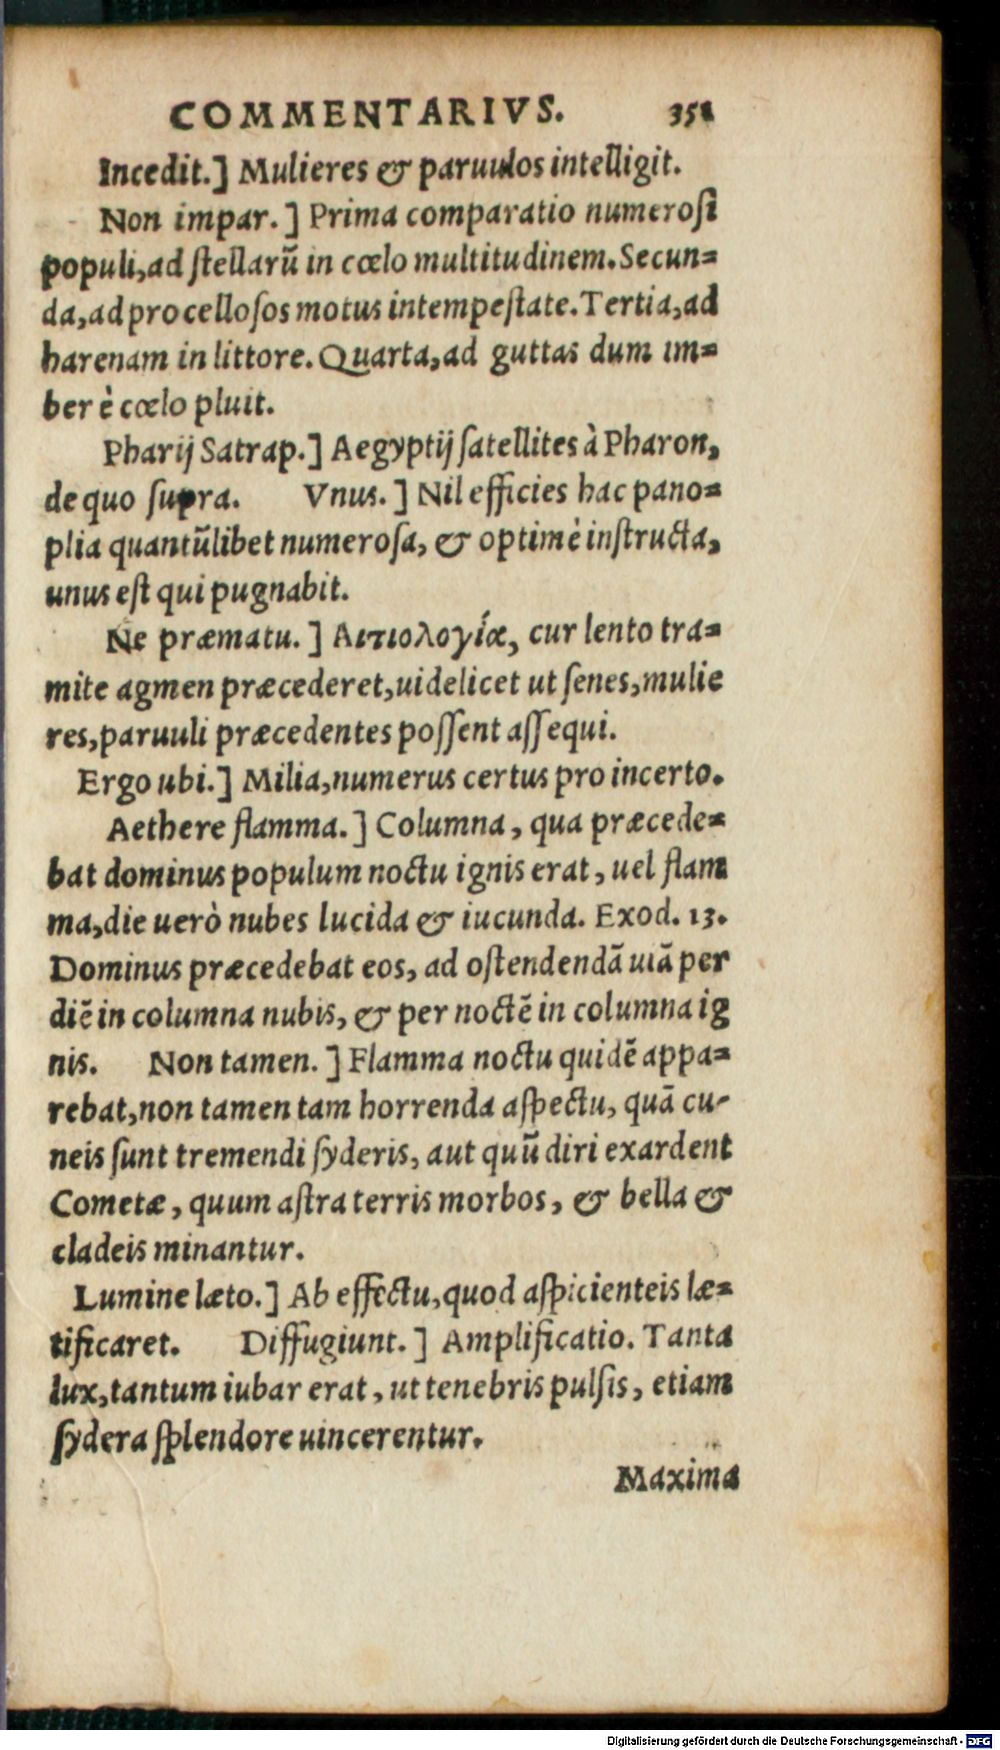 COMMENTARIVS. 351
Incedit.] Mulieres & paruulos intelligit.
Non impar.] Prima comparatio numerosi
populi, ad stellarũ in cœlo multitudinem. Secun=
da, ad procellosos motus in tempestate. Tertia, ad
harenam in littore. Quarta, ad guttas dum im=
ber è cœlo pluit.
Pharij Satrap.] Aegyptij satellites à Pharon,
de quo supra. Vnus.] Nil efficies hac pano=
plia quantũlibet numerosa, & optimè instructa,
unus est qui pugnabit.
Ne præmatu.] Αιτιολογία, cur lento tra=
mite agmen præcederet, uidelicet ut senes, mulie
res, paruuli præcedentes possent assequi.
Ergo ubi.] Milia, numerus certus pro incerto.
Aethere flamma.] Columna, qua præcede=
bat dominus populum noctu ignis erat, uel flam
ma, die uerò nubes lucida & iucunda. Exod. 13.
Dominus præcedebat eos, ad ostendendã uiã per
diẽ in columna nubis, & per noctẽ in columna ig
nis. Non tamen.] Flamma noctu quidẽ appa=
rebat, non tamen tam horrenda aspectu, quã cu-
neis sunt tremendi syderis, aut quũ diri exardent
Cometæ, quum astra terris morbos, & bella &
cladeis minantur.
Lumine læto.] Ab effectu, quod aspicienteis læ=
tificaret. Diffugiunt.] Amplificatio. Tanta
lux, tantum iubar erat, ut tenebris pulsis, etiam
sydera splendore uincerentur.
Maxima
Digitalisierung gefördert durch die Deutsche Forschungsgemeinschaft - DFG